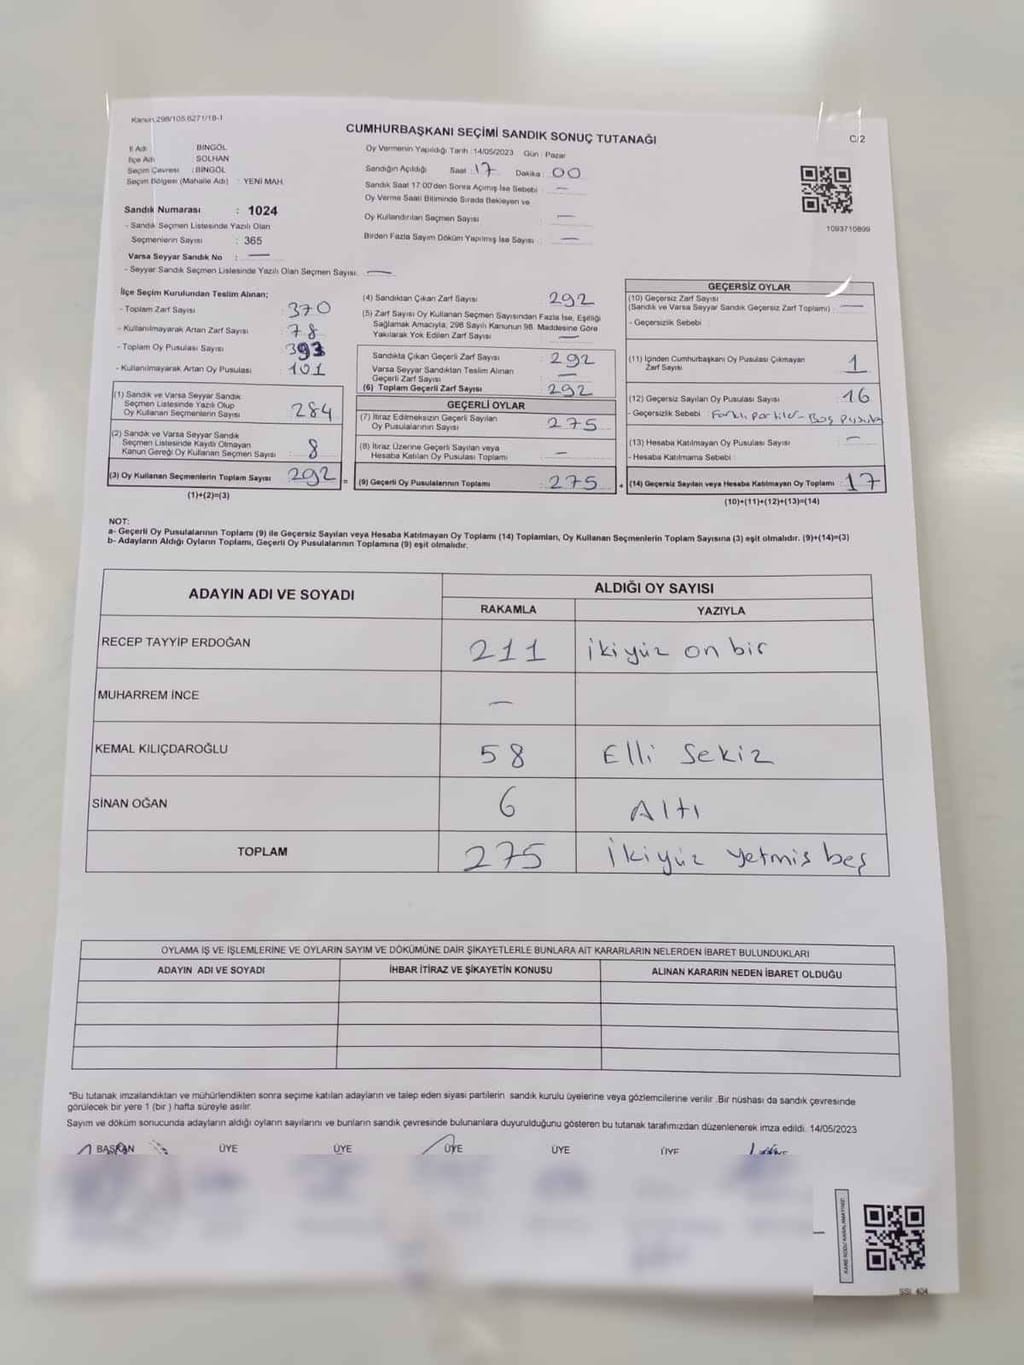 Kanun.298/105.6271/18-1
CUMHURBAŞKANI SEÇİMİ SANDIK SONUÇ TUTANAĞI
C/2
İl Adı : BİNGÖL
İlçe Adı : SOLHAN
Seçim Çevresi : BİNGÖL
Seçim Bölgesi (Mahalle Adı) : YENİ MAH.
Sandık Numarası : 1024
- Sandık Seçmen Listesinde Yazılı Olan
Seçmenlerin Sayısı : 365
Varsa Seyyar Sandık No : —
- Seyyar Sandık Seçmen Listesinde Yazılı Olan Seçmen Sayısı: —
Oy Vermenin Yapıldığı Tarih :14/05/2023 Gün : Pazar
Sandığın Açıldığı Saat : 17 Dakika : 00
Sandık Saat 17.00'den Sonra Açımış İse Sebebi : —
Oy Verme Saati Bitiminde Sırada Bekleyen ve
Oy Kullandırılan Seçmen Sayısı : —
Birden Fazla Sayım Döküm Yapılmış İse Sayısı : —
1093710899
İlçe Seçim Kurulundan Teslim Alınan;
- Toplam Zarf Sayısı : 370
- Kullanılmayarak Artan Zarf Sayısı : 78
- Toplam Oy Pusulası Sayısı : 393
- Kullanılmayarak Artan Oy Pusulası : 101
(1) Sandık ve Varsa Seyyar Sandık
Seçmen Listesinde Yazılı Olup
Oy Kullanan Seçmenlerin Sayısı : 284
(2) Sandık ve Varsa Seyyar Sandık
Seçmen Listesinde Kayıtlı Olmayan
Kanun Gereği Oy Kullanan Seçmen Sayısı : 8
(3) Oy Kullanan Seçmenlerin Toplam Sayısı : 292 =
(1)+(2)=(3)
(4) Sandıktan Çıkan Zarf Sayısı : 292
(5) Zarf Sayısı Oy Kullanan Seçmen Sayısından Fazla İse, Eşitliği
Sağlamak Amacıyla, 298 Sayılı Kanunun 98. Maddesine Göre
Yakılarak Yok Edilen Zarf Sayısı : —
Sandıkta Çıkan Geçerli Zarf Sayısı : 292
Varsa Seyyar Sandıktan Teslim Alınan
Geçerli Zarf Sayısı : —
(6) Toplam Geçerli Zarf Sayısı : 292
GEÇERLİ OYLAR
(7) İtiraz Edilmeksizin Geçerli Sayılan
Oy Pusulalarının Sayısı : 275
(8) İtiraz Üzerine Geçerli Sayılan veya
Hesaba Katılan Oy Pusulası Toplamı : —
(9) Geçerli Oy Pusulalarının Toplamı : 275 +
GEÇERSİZ OYLAR
(10) Geçersiz Zarf Sayısı
(Sandık ve Varsa Seyyar Sandık Geçersiz Zarf Toplamı) : —
- Geçersizlik Sebebi :
(11) İçinden Cumhurbaşkanı Oy Pusulası Çıkmayan
Zarf Sayısı : 1
(12) Geçersiz Sayılan Oy Pusulası Sayısı : 16
- Geçersizlik Sebebi : Farklı partiler - Boş pusula
(13) Hesaba Katılmayan Oy Pusulası Sayısı : —
- Hesaba Katılmama Sebebi :
(14) Geçersiz Sayılan veya Hesaba Katılmayan Oy Toplamı : 17
(10)+(11)+(12)+(13)=(14)
NOT:
a- Geçerli Oy Pusulalarının Toplamı (9) ile Geçersiz Sayılan veya Hesaba Katılmayan Oy Toplamı (14) Toplamları, Oy Kullanan Seçmenlerin Toplam Sayısına (3) eşit olmalıdır. (9)+(14)=(3)
b- Adayların Aldığı Oyların Toplamı, Geçerli Oy Pusulalarının Toplamına (9) eşit olmalıdır.
ADAYIN ADI VE SOYADI
ALDIĞI OY SAYISI
RAKAMLA YAZIYLA
RECEP TAYYİP ERDOĞAN 211 ikiyüz on bir
MUHARREM İNCE —
KEMAL KILIÇDAROĞLU 58 Elli Sekiz
SİNAN OĞAN 6 Altı
TOPLAM 275 İkiyüz yetmiş beş
OYLAMA İŞ VE İŞLEMLERİNE VE OYLARIN SAYIM VE DÖKÜMÜNE DAİR ŞİKAYETLERLE BUNLARA AİT KARARLARIN NELERDEN İBARET BULUNDUKLARI
ADAYIN ADI VE SOYADI İHBAR İTİRAZ VE ŞİKAYETİN KONUSU ALINAN KARARIN NEDEN İBARET OLDUĞU
*Bu tutanak imzalandıktan ve mühürlendikten sonra seçime katılan adayların ve talep eden siyasi partilerin sandık kurulu üyelerine veya gözlemcilerine verilir .Bir nüshası da sandık çevresinde
görülecek bir yere 1 (bir ) hafta süreyle asılır.
Sayım ve döküm sonucunda adayların aldığı oyların sayılarını ve bunların sandık çevresinde bulunanlara duyurulduğunu gösteren bu tutanak tarafımızdan düzenlenerek imza edildi. 14/05/2023
BAŞKAN ÜYE ÜYE ÜYE ÜYE ÜYE